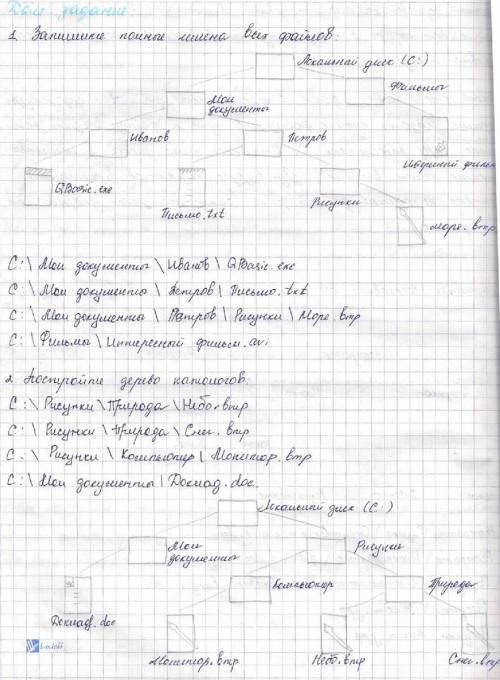 Дом. задание.
1. Запишите полные имена всех файлов:
Локальный диск (C:)
Фильмы
Мои
документы
Иванов
Петров
QBasic.exe
Письмо.txt
Рисунки
Интересный фильм
Море.bmp
C:\ Мои документы \ Иванов \ QBasic.exe
C:\ Мои документы \ Петров \ Письмо.txt
C:\ Мои документы \ Петров \ Рисунки \ Море.bmp
C:\ Фильмы \ Интересный фильм.avi
2. Постройте дерево каталогов:
C:\ Рисунки \ Природа \ Небо.bmp
C:\ Рисунки \ Природа \ Снег.bmp
C:\ Рисунки \ Компьютер \ Монитор.bmp
C:\ Мои документы \ Доклад.doc.
Локальный диск (C:)
Мои
документы
Рисунки
Компьютер
Природа
Доклад.doc
Монитор.bmp
Небо.bmp
Снег.bmp